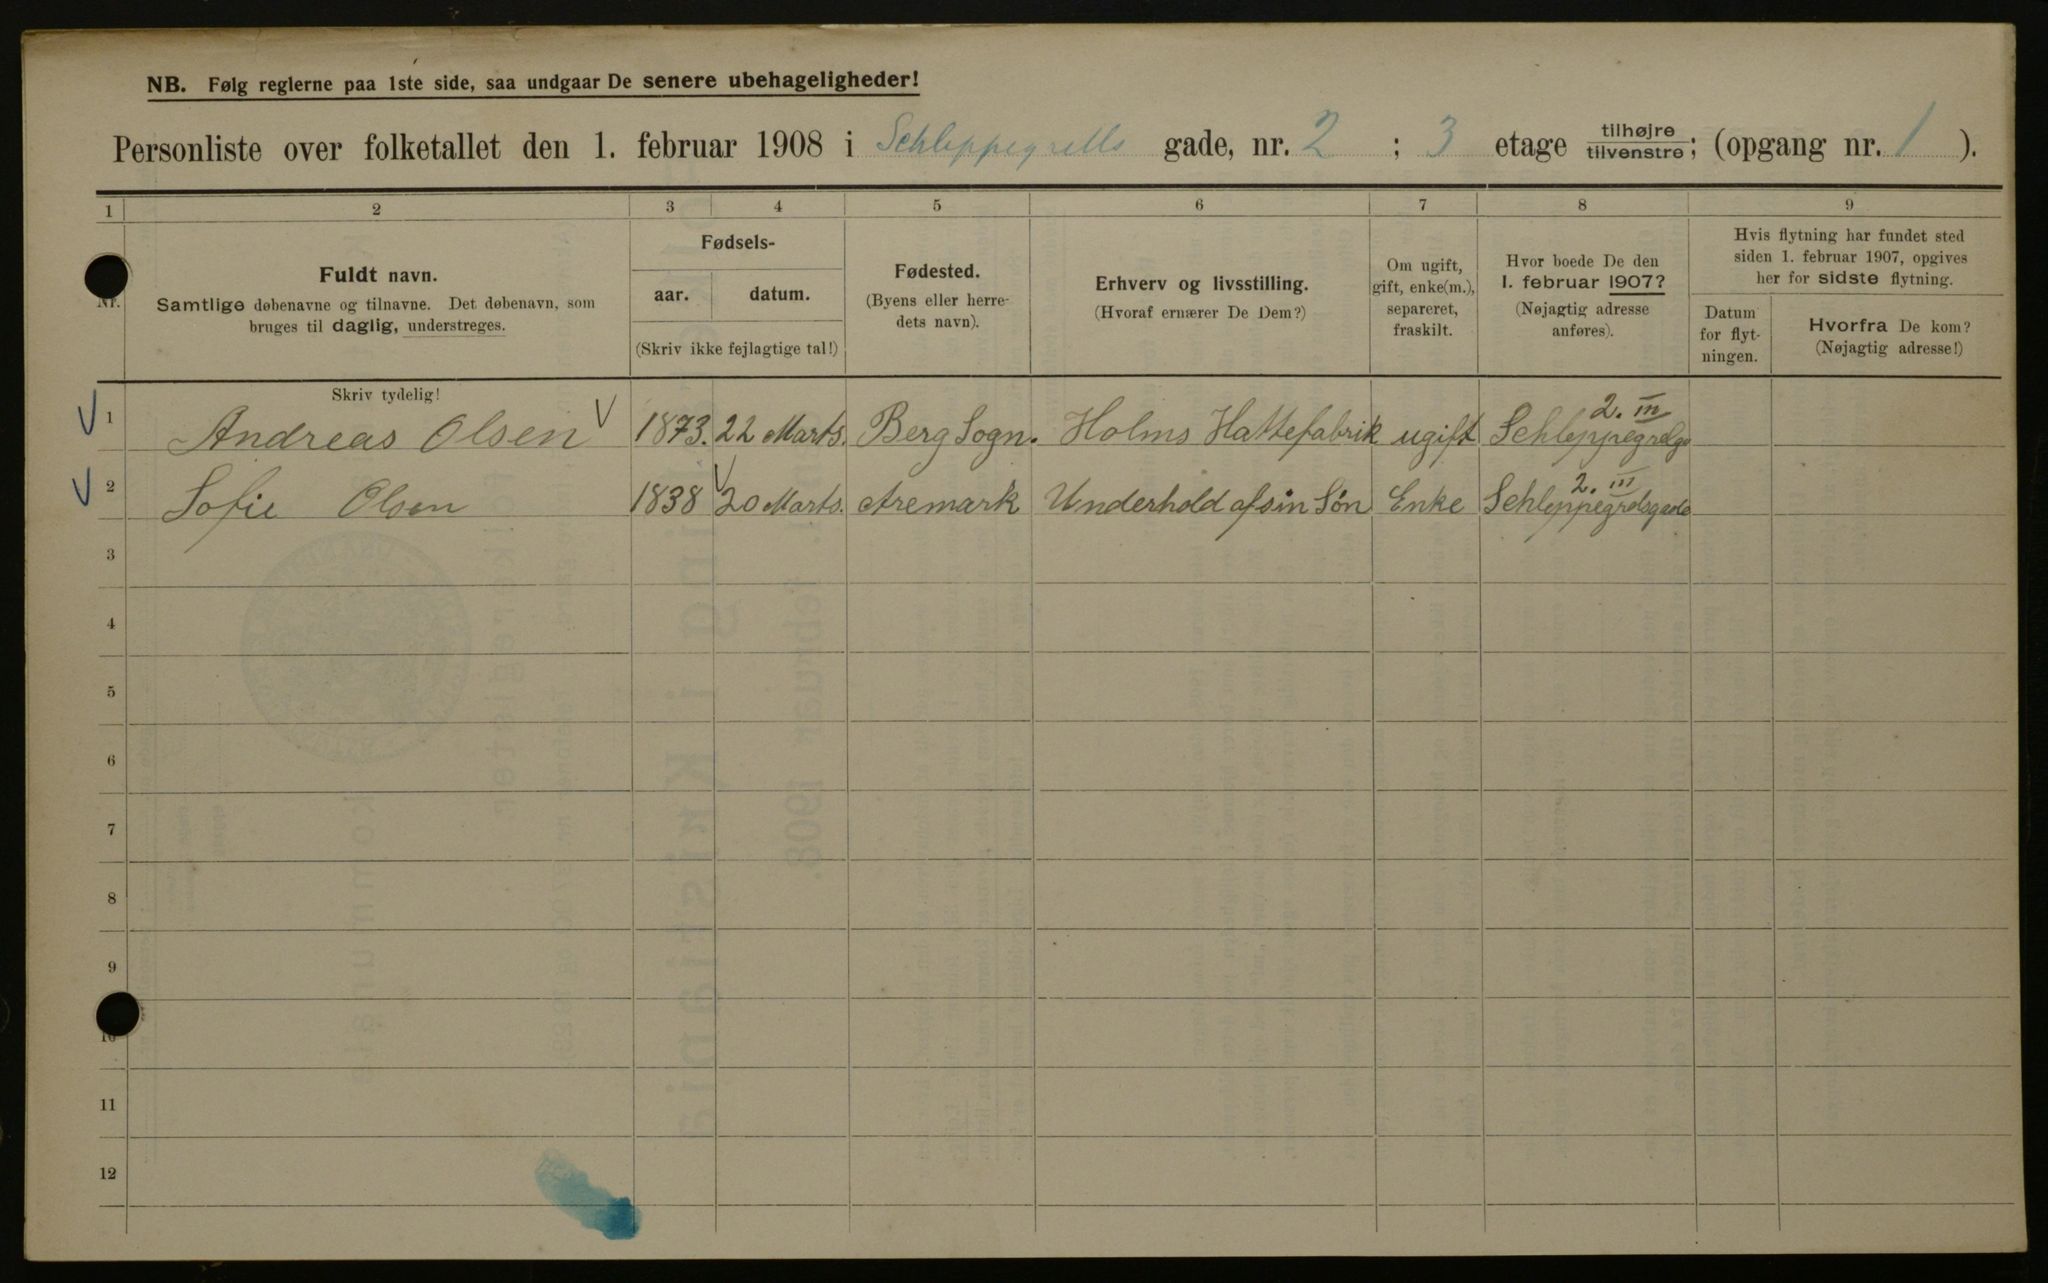 NB. Følg reglerne paa 1ste side, saa undgaar De senere ubehageligheder!
Personliste over folketallet den 1. februar 1908 i Schleppegrells gade, nr. 2 ; 3 etage tilhøjre tilvenstre; (opgang nr. 1 ).
1 2 3 4 5 6 7 8 9
Nr.
Fuldt navn.
Samtlige døbenavne og tilnavne. Det døbenavn, som
bruges til daglig, understreges.
Fødsels-
aar. datum.
(Skriv ikke fejlagtige tal!)
Fødested.
(Byens eller herre-
dets navn).
Erhverv og livsstilling.
(Hvoraf ernærer De Dem?)
Om ugift,
gift, enke(m.),
separeret,
fraskilt.
Hvor boede De den
1. februar 1907?
(Nøjagtig adresse
anføres).
Hvis flytning har fundet sted
siden 1. februar 1907, opgives
her for sidste flytning.
Datum
for flyt-
ningen.
Hvorfra De kom?
(Nøjagtig adresse!)
Skriv tydelig!
2. III
1 Andreas Olsen 1873. 22 Marts. Berg Sogn. Holms Hattefabrik ugift Schleppegrelgd
2. III
2 Sofie Olsen 1838 20 Marts. Aremark Underhold af sin Søn Enke Schleppegrelsgade
3
4
5
6
7
8
9
10
11
12